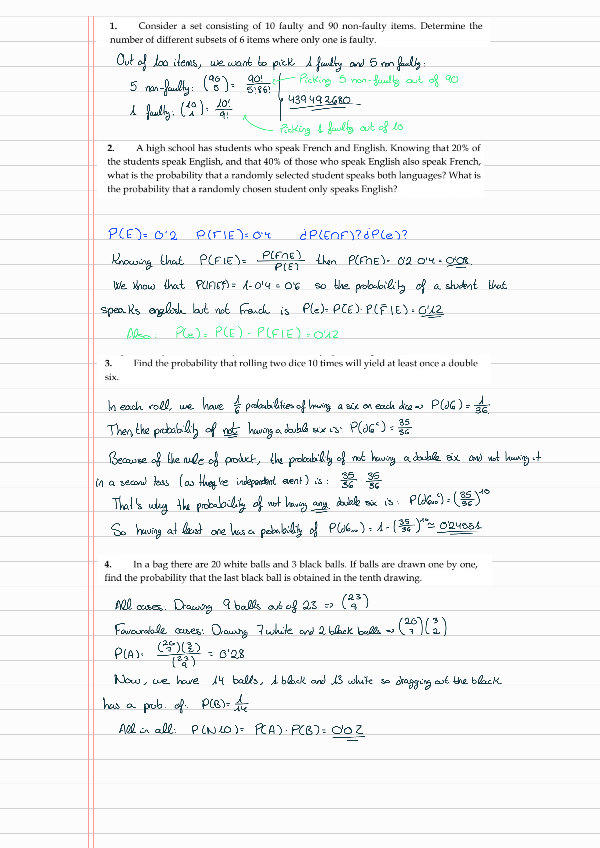 1. Consider a set consisting of 10 faulty and 90 non-faulty items. Determine the
number of different subsets of 6 items where only one is faulty.
Out of 100 items, we want to pick 1 faulty and 5 non faulty:
5 non-faulty: (90 5) = 90!/5!85! ← Picking 5 non-faulty out of 90
439492680
1 faulty: (10 1) = 10!/9!
Picking 1 faulty out of 10
2. A high school has students who speak French and English. Knowing that 20% of
the students speak English, and that 40% of those who speak English also speak French,
what is the probability that a randomly selected student speaks both languages? What is
the probability that a randomly chosen student only speaks English?
P(E)= 0'2 P(F|E)= 0'4 ¿P(E∩F)? ¿P(e)?
Knowing that P(F|E)= P(F∩E)/P(E) then P(F∩E)= 0'2 · 0'4 = 0'08
We know that = 1-0'4 = 0'6 so the probability of a student that
speaks english but not French is P(e)= P(E) · P(F̄|E) = 0'12
Also: P(e)= P(E) - P(F|E) = 0'12
3. Find the probability that rolling two dice 10 times will yield at least once a double
six.
In each roll, we have 1/6 probabilities of having a six on each dice ⇒ P(d6) = 1/36.
Then, the probability of not having a double six is: P(d6ᶜ) = 35/36
Because of the rule of product, the probability of not having a double six and not having it
in a second toss (as they're independent event) is: 35/36 · 35/36
That's why the probability of not having any double six is: = (35/36)^10
So having at least one has a probability of = 1-(35/36)^10 ≈ 0'24551
4. In a bag there are 20 white balls and 3 black balls. If balls are drawn one by one,
find the probability that the last black ball is obtained in the tenth drawing.
All cases: Drawing 9 balls out of 23 ⇒ (23 9)
Favourable cases: Drawing 7 white and 2 black balls ⇒ (20 7)(3 2)
P(A): (20 7)(3 2)/(23 9) = 0'28
Now, we have 14 balls, 1 black and 13 white so dragging out the black
has a prob. of: P(B)= 1/14
All in all: P(N10) = P(A) · P(B) = 0'02